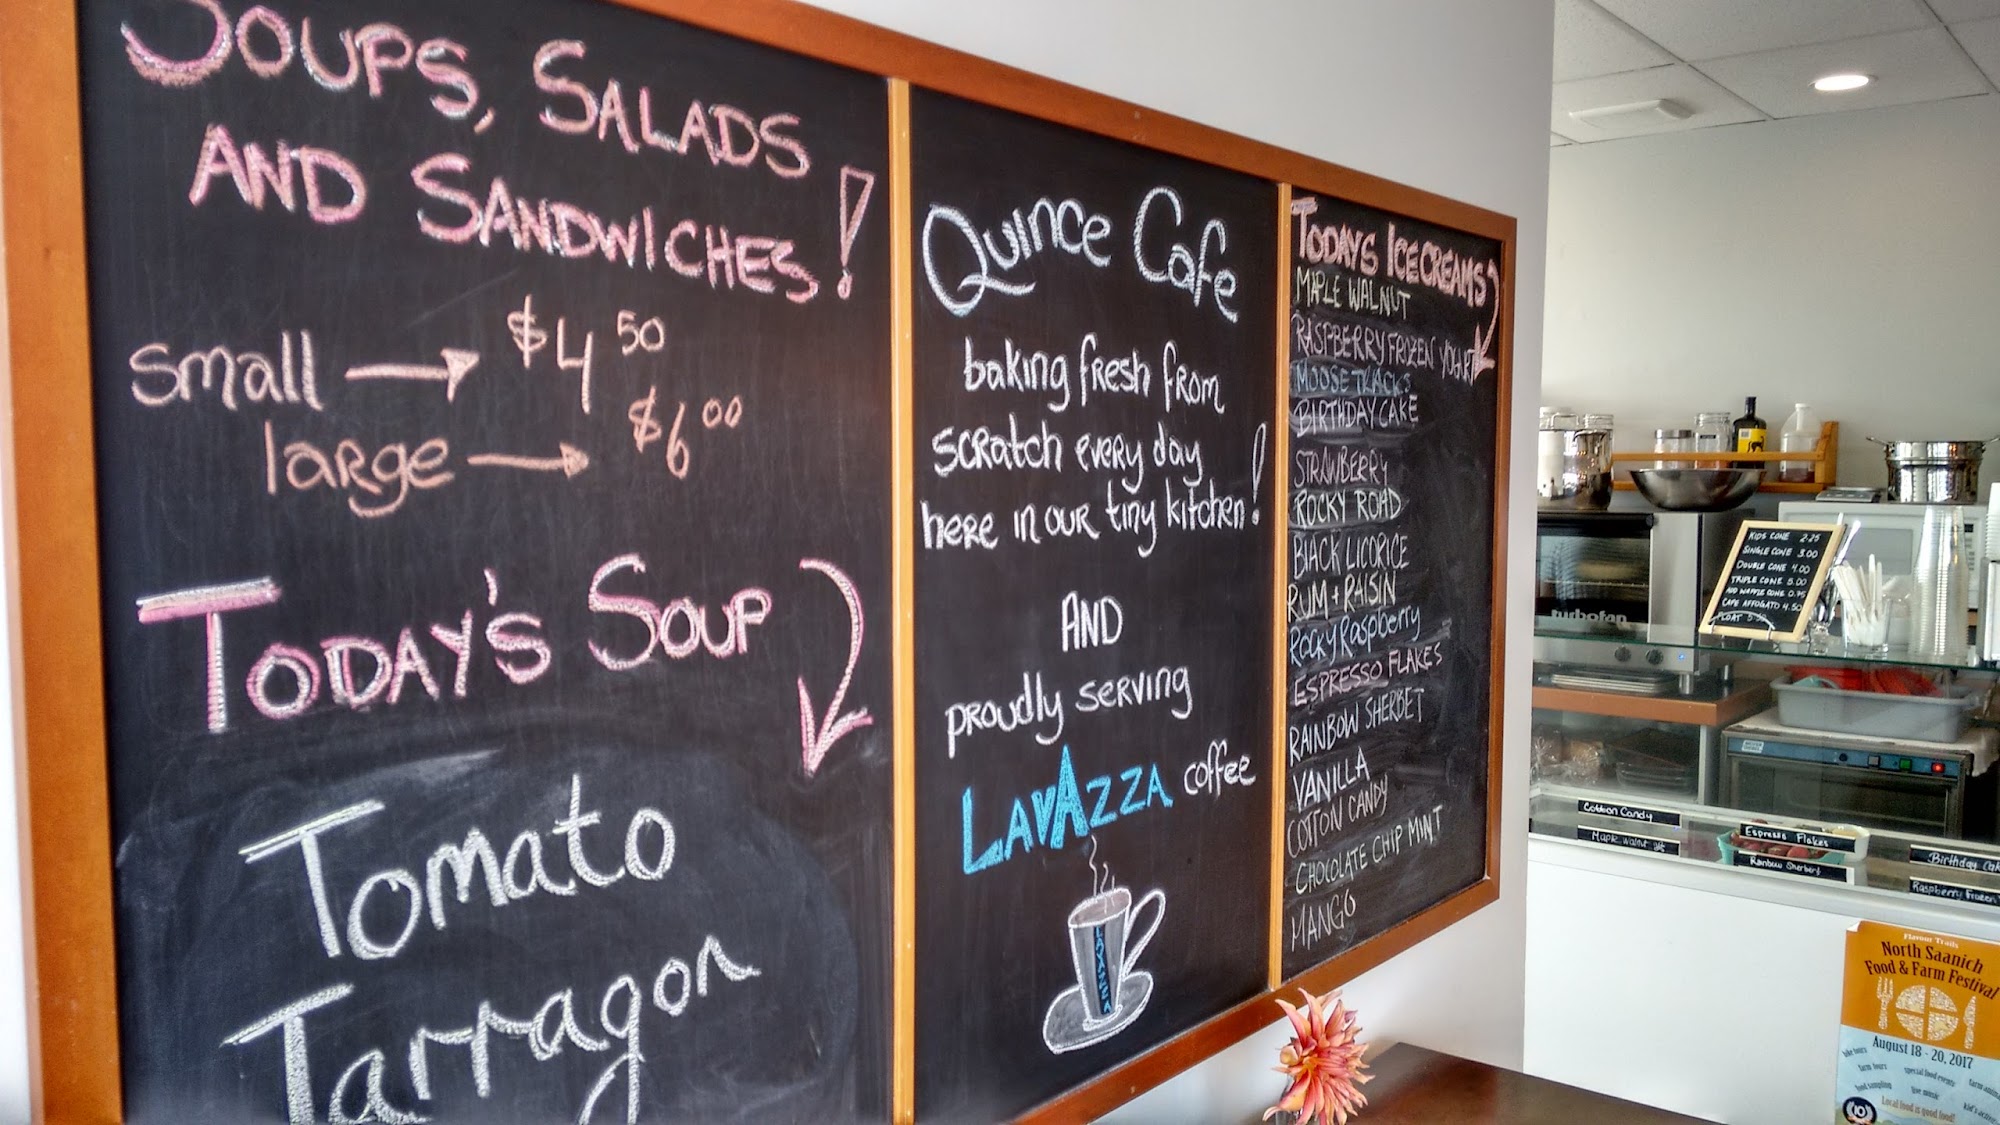 SOUPS, SALADS
AND SANDWICHES!
small → $4 50
large → $6 00
TODAY'S SOUP
Tomato
Tarragon
Quince Cafe
baking fresh from
scratch every day
here in our tiny kitchen!
AND
proudly serving
LAVAZZA coffee
LAVAZZA
TODAYS ICE CREAMS
MAPLE WALNUT
RASPBERRY FROZEN YOGURT
MOOSE TRACKS
BIRTHDAY CAKE
STRAWBERRY
ROCKY ROAD
BLACK LICORICE
RUM + RAISIN
Rocky Raspberry
ESPRESSO FLAKES
RAINBOW SHERBET
VANILLA
COTTON CANDY
CHOCOLATE CHIP MINT
MANGO
KIDS CONE 2.25
SINGLE CONE 3.00
DOUBLE CONE 4.00
TRIPLE CONE 5.00
ADD WAFFLE CONE 0.75
CAFE AFFOGATO 4.50
FLOAT 5.50
turbofan
Cotton Candy
Maple Walnut
Espresso Flakes
Rainbow Sherbert
Birthday Cak
Raspberry Frozen
Flavour Trails
North Saanich
Food & Farm Festival
August 18 - 20, 2017
bike tours
farm tours
special food events
food sampling
live music
Local food is good food!
10